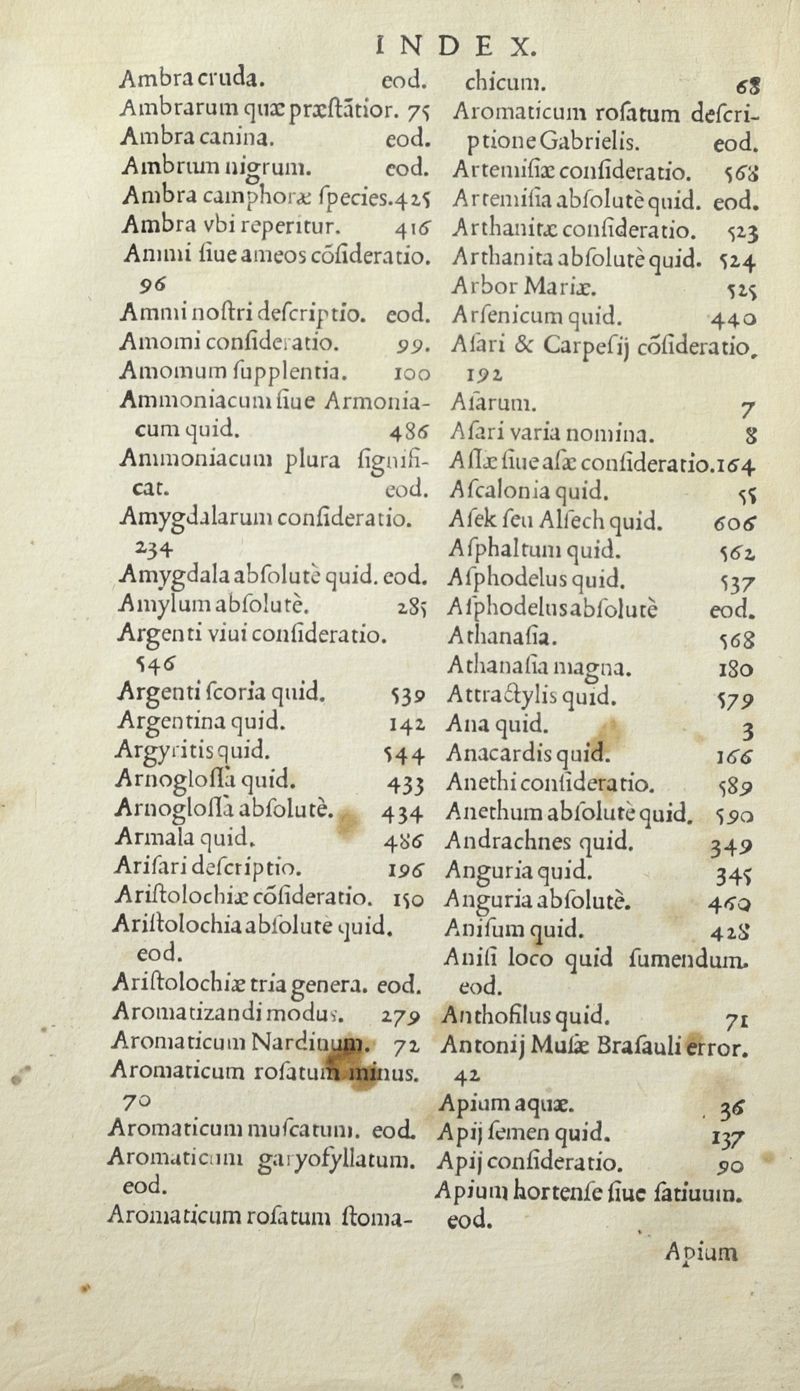 INDEX.
Ambra cruda. eod.
Ambrarum quæ præſtãtior. 75
Ambra canina. eod.
Ambrum nigrum. eod.
Ambra camphoræ ſpecies. 425
Ambra vbi reperitur. 416
Ammi ſiue ameos cõſideratio.
96
Ammi noſtri deſcriptio. eod.
Amomi conſideratio. 99.
Amomum ſupplentia. 100
Ammoniacum ſiue Armonia-
cum quid. 486
Ammoniacum plura ſignifi-
cat. eod.
Amygdalarum conſideratio.
234
Amygdala abſolutè quid. eod.
Amylum abſolutè. 285
Argenti viui conſideratio.
546
Argenti ſcoria quid. 539
Argentina quid. 142
Argyritis quid. 544
Arnogloſſa quid. 433
Arnogloſſa abſolutè. 434
Armala quid. 486
Ariſari deſcriptio. 196
Ariſtolochiæ cõſideratio. 150
Ariſtolochia abſolute quid.
eod.
Ariſtolochiæ tria genera. eod.
Aromatizandi modus. 279
Aromaticum Nardinum. 72
Aromaticum roſatum minus.
70
Aromaticum muſcatum. eod.
Aromaticum garyofyllatum.
eod.
Aromaticum roſatum ſtoma-
chicum. 68
Aromaticum roſatum deſcri-
ptione Gabrielis. eod.
Artemiſiæ conſideratio. 568
Artemiſia abſolutè quid. eod.
Arthanitæ conſideratio. 523
Arthanita abſolutè quid. 524
Arbor Mariæ. 525
Arſenicum quid. 440
Aſari & Carpeſij cõſideratio.
192
Aſarum. 7
Aſari varia nomina. 8
Aſſæ ſiue aſæ conſideratio. 164
Aſcalonia quid. 55
Aſek ſeu Alſech quid. 606
Aſphaltum quid. 562
Aſphodelus quid. 537
Aſphodelus abſolutè eod.
Athanaſia. 568
Athanaſia magna. 180
Attractylis quid. 579
Ana quid. 3
Anacardis quid. 166
Anethi conſideratio. 589
Anethum abſolutè quid. 590
Andrachnes quid. 349
Anguria quid. 345
Anguria abſolutè. 460
Aniſum quid. 428
Aniſi loco quid ſumendum.
eod.
Anthofilus quid. 71
Antonij Muſæ Braſauli error.
42
Apium aquæ. 36
Apij ſemen quid. 137
Apij conſideratio. 90
Apium hortenſe ſiue ſatiuum.
eod.
Apium